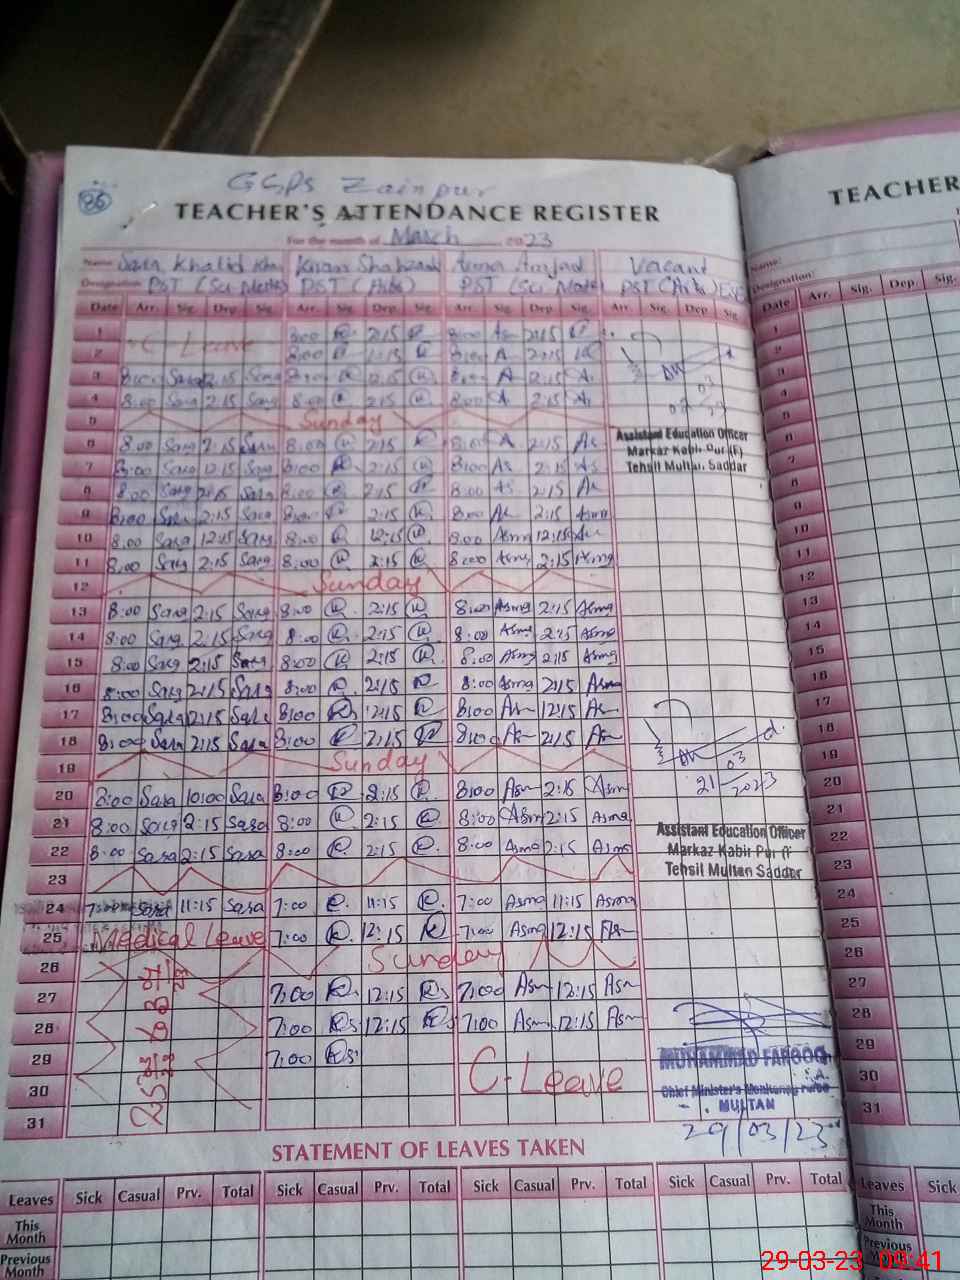 86
GGPS Zainpur
TEACHER'S ATTENDANCE REGISTER
TEACHER
For the month of March 2023
Name: Sara Khalid Khan Kiran Shahzadi Asma Amjad Vacant
Name:
Designation: PST (Sci Math) PST (Arts) PST (Sci Math) PST (Arts)
Designation:
Date Arr. Sig. Dep Sig. Arr. Sig. Dep Sig. Arr. Sig. Dep Sig. Arr. Sig. Dep Sig.
Date Arr. Sig. Dep Sig.
1 C-Leave 8:00 2:15 8:00 Asm 2:15
2 8:00 8:00 A 2:15
3 8:00 Sara 2:15 Sara 8:00 K 2:15 K 8:00 A 2:15 A
4 8:00 Sara 2:15 Sara 8:00 K 2:15 K 8:00 A 2:15 A
5 Sunday
6 8:00 Sara 2:15 Sara 8:00 K 2:15 K 8:00 A 2:15 As
Assistant Education Officer
Markaz Kabir Pur (F)
Tehsil Multan Saddar
7 8:00 Sara 12:15 Sara 8:00 K 2:15 K 8:00 As 2:15 As
8 8:00 Sara 2:15 Sara 8:00 K 2:15 K 8:00 As 2:15 As
9 8:00 Sara 2:15 Sara 8:00 K 2:15 K 8:00 As 2:15 Asma
10 8:00 Sara 12:15 Sara 8:00 K 12:15 K 8:00 Asma 12:15 As
11 8:00 Sara 2:15 Sara 8:00 K 2:15 K 8:00 Asma 2:15 Asma
12 Sunday
13 8:00 Sara 2:15 Sara 8:00 K 2:15 K 8:00 Asma 2:15 Asma
14 8:00 Sara 2:15 Sara 8:00 K 2:15 K 8:00 Asma 2:15 Asma
15 8:00 Sara 2:15 Sara 8:00 K 2:15 K 8:00 Asma 2:15 Asma
16 8:00 Sara 2:15 Sara 8:00 K 2:15 K 8:00 Asma 2:15 Asma
17 8:00 Sara 2:15 Sara 8:00 K 12:15 K 8:00 Asm 12:15 As
18 8:00 Sara 2:15 Sara 8:00 K 2:15 K 8:00 Asm 2:15 Asm
19 Sunday
20 8:00 Sara 10:00 Sara 8:00 K 2:15 K 8:00 Asm 2:15 Asm
21 03 2023
21 8:00 Sara 2:15 Sara 8:00 K 2:15 K 8:00 Asm 2:15 Asma
22 8:00 Sara 2:15 Sara 8:00 K 2:15 K 8:00 Asma 2:15 Asma
Assistant Education Officer
Markaz Kabir Pur (F
Tehsil Multan Saddar
23
24 7:00 Sara 11:15 Sara 7:00 K 11:15 K 7:00 Asma 11:15 Asma
25 Medical Leave 7:00 K 12:15 K 7:00 Asma 12:15 Asm
26 Sunday
27 7:00 Ks 12:15 Ks 7:00 Asm 12:15 Asm
28 7:00 Ks 12:15 Ks 7:00 Asm 12:15 Asm
29 7:00 Ks C-Leave
30
31
MUHAMMAD FAROOQ
Chief Minister's Monitoring Force
MULTAN
29/03/23
1
2
3
4
5
6
7
8
9
10
11
12
13
14
15
16
17
18
19
20
21
22
23
24
25
26
27
28
29
30
31
STATEMENT OF LEAVES TAKEN
Leaves Sick Casual Prv. Total Sick Casual Prv. Total Sick Casual Prv. Total Sick Casual Prv. Total
Leaves Sick
This Month
This Month
Previous Month
Previous
29-03-23 09:41